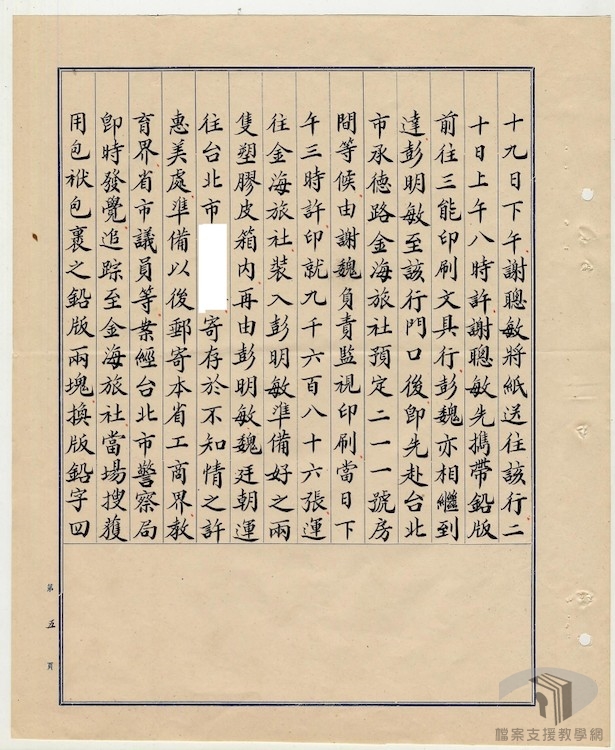 十九日下午謝聰敏將紙送往該行二
十日上午八時許謝聰敏先攜帶鉛版
前往三能印刷文具行彭魏亦相繼到
達彭明敏至該行門口後即先赴台北
市承德路金海旅社預定二一一號房
間等候由謝魏負責監視印刷當日下
午三時許印就九千六百八十六張運
往金海旅社裝入彭明敏準備好之兩
隻塑膠皮箱內再由彭明敏魏廷朝運
往台北市 寄存於不知情之許
惠美處準備以後郵寄本省工商界教
育界省市議員等業經台北市警察局
即時發覺追踪至金海旅社當場搜獲
用包袱包裹之鉛版兩塊換版鉛字四
第五頁
檔案支援教學網